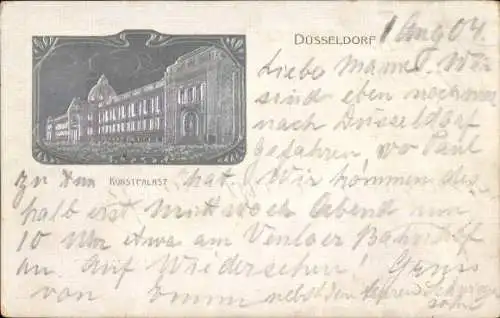 DÜSSELDORF 1 Aug 04.
Liebe Mama! Wir
sind eben nochmal
nach Düsseldorf
gefahren wo Paul
zu tun hat. Wir kommen des-
KUNSTPALAST
halb erst Mittwoch Abend um
10 Uhr etwa am Venloer Bahnhof
an. Auf Wiedersehen! Gruss
von Emmi nebst den